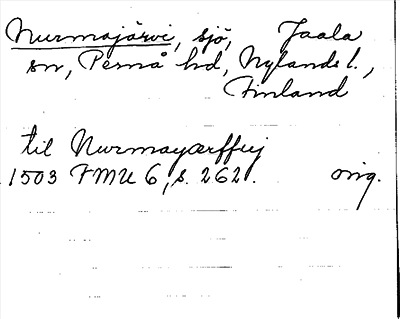 Nurmajärvi, sjö, Jaala
sn, Pernå hd, Nylands l.,
Finland
til Nurmayærffuj
1503 FMU 6, s. 262. orig.